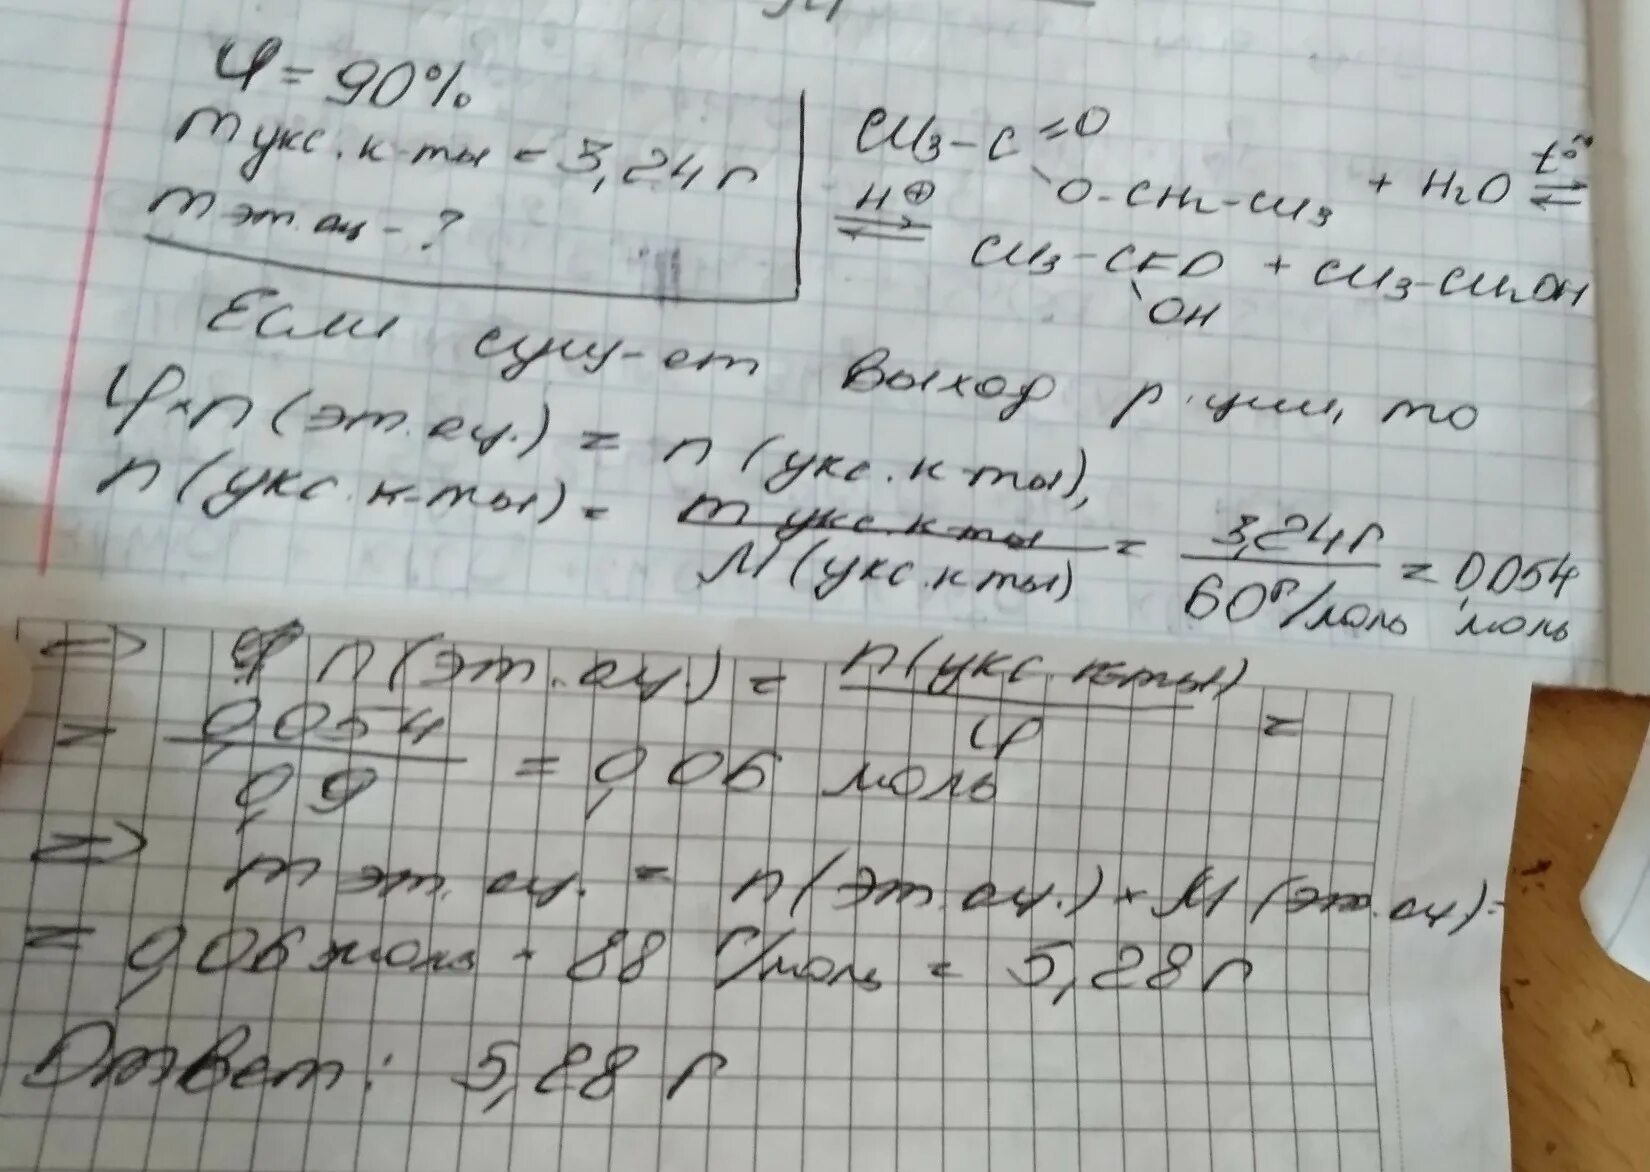 φ = 90%
m укс. к-ты = 3,24 г
m эт. ац - ?
CH3-C=O
O-CH2-CH3 + H2O t° ⇌
H⊕ ⇌
CH3-C=O + CH3-CH2OH
OH
Если сущ-ет выход р-ции, то
φ·n(эт.ац.) = n(укс.к-ты),
n(укс.к-ты) = m укс.к-ты / M(укс.к-ты) = 3,24 г / 60 г/моль = 0,054 моль
=> n(эт.ац.) = n(укс.к-ты) / φ =
= 0,054 / 0,9 = 0,06 моль
=> m эт. ац. = n(эт.ац.)·M(эт.ац) =
= 0,06 моль · 88 г/моль = 5,28 г
Ответ: 5,28 г